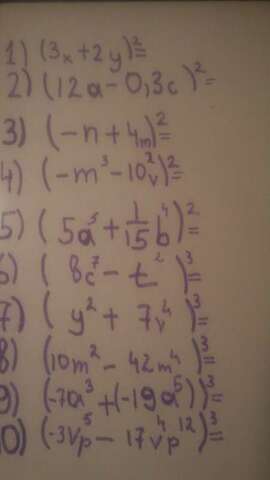 1) (3x+2y)²=
2) (12a-0,3c)²=
3) (-n+4m)²=
4) (-m³-10v²)²=
5) (5a³+1/15b⁴)²=
6) (8c⁷-t²)³=
7) (y²+7v⁴)³=
8) (10m²-42m⁴)³=
9) (-7a³+(-19a⁵))³=
10) (-3vp⁵-17v⁴p¹²)³=